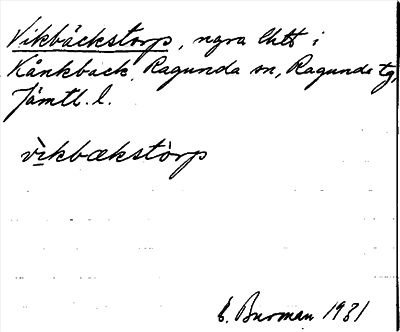 Vikbäckstorp, ngra lhtr i
Kånkback, Ragunda sn, Ragunda tg,
Jämtl. l.
vìkbækstòrp
E. Burman 1931